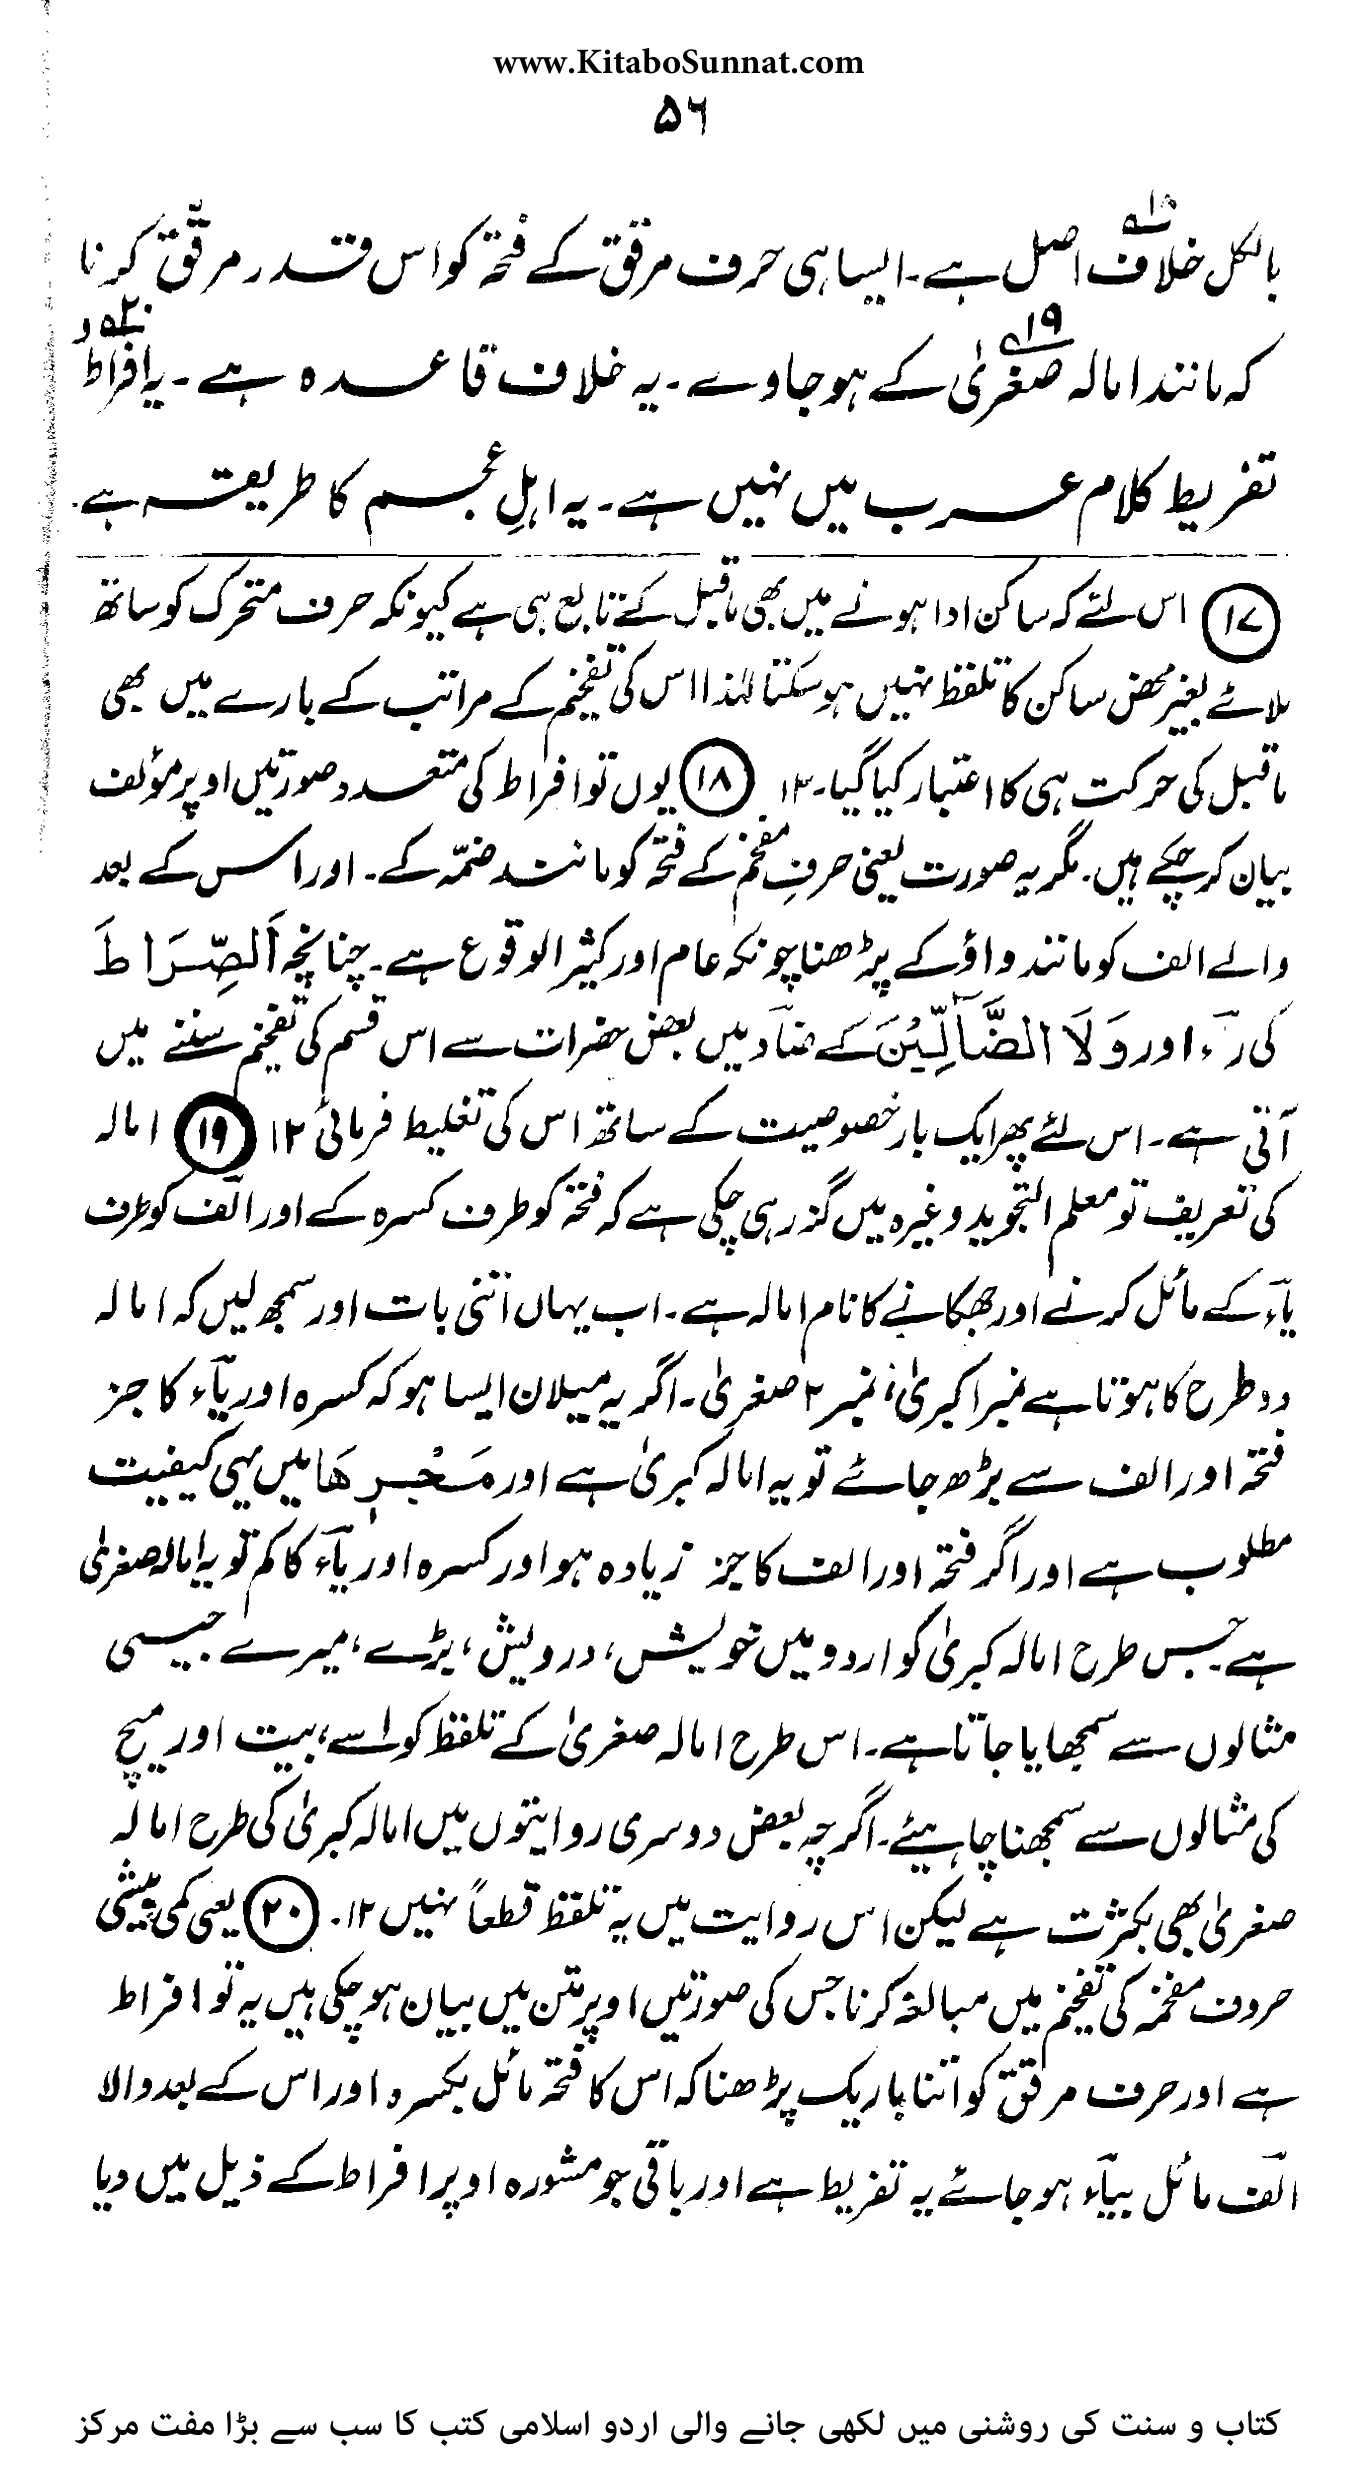 www.KitaboSunnat.com
۵۶
بالکل خلاف ۱۸؎ اصل ہے۔ ایسا ہی حرف مرقق کے فتحہ کو اس قدر مرقّق کرنا
کہ مانند امالہ صغریٰ ۱۹؎ کے ہو جاوے۔ یہ خلاف قاعدہ ہے۔ یہ افراط ۲۰؎ و
تفریط کلام عرب میں نہیں ہے۔ یہ اہلِ عجم کا طریقہ ہے۔
۱۷ اس لئے کہ ساکن ادا ہونے میں بھی ماقبل کے تابع ہی ہے کیونکہ حرف متحرک کو ساتھ
ملائے بغیر محض ساکن کا تلفظ نہیں ہو سکتا لہٰذا اس کی تفخیم کے مراتب کے بارے میں بھی
ماقبل کی حرکت ہی کا اعتبار کیا گیا۔ ۱۲ ۱۸ یوں تو افراط کی متعدد صورتیں اوپر مؤلف
بیان کر چکے ہیں۔ مگر یہ صورت یعنی حرفِ مفخم کے فتحہ کو مانند ضمّہ کے۔ اور اس کے بعد
والے الف کو مانند واؤ کے پڑھنا چونکہ عام اور کثیر الوقوع ہے۔ چنانچہ اَلصِّرَاطَ
کی رآء اور وَلَا الضَّآلِّیْنَ کے ضآد میں بعض حضرات سے اس قسم کی تفخیم سننے میں
آتی ہے۔ اس لئے پھر ایک بار خصوصیت کے ساتھ اس کی تغلیط فرمائی ۱۲ ۱۹ امالہ
کی تعریف تو معلم التجوید وغیرہ میں گذر ہی چکی ہے کہ فتحہ کو طرف کسرہ کے اور الٓف کو طرف
یآء کے مائل کرنے اور جھکانے کا نام امالہ ہے۔ اب یہاں اتنی بات اور سمجھ لیں کہ امالہ
دو طرح کا ہوتا ہے نمبر۱ کبریٰ، نمبر ۲ صغریٰ۔ اگر یہ میلان ایسا ہو کہ کسرہ اور یآء کا جز
فتحہ اور الف سے بڑھ جائے تو یہ امالہ کبریٰ ہے اور مَجْرٖىهَا میں یہی کیفیت
مطلوب ہے اور اگر فتحہ اور الف کا جز زیادہ ہو اور کسرہ اور یآء کا کم تو یہ امالہ صغریٰ
ہے جس طرح امالہ کبریٰ کو اردو میں خویش، درویش، بڑے، میرے جیسی
مثالوں سے سمجھایا جاتا ہے۔ اس طرح امالہ صغریٰ کے تلفظ کو اسے، بیت اور میچ
کی مثالوں سے سمجھنا چاہیئے۔ اگرچہ بعض دوسری روایتوں میں امالہ کبریٰ کی طرح امالہ
صغریٰ بھی بکثرت ہے لیکن اس روایت میں یہ تلفظ قطعاً نہیں ۱۲۔ ۲۰ یعنی کمی بیشی
حروف مفخمہ کی تفخیم میں مبالغہ کرنا جس کی صورتیں اوپر متن میں بیان ہو چکی ہیں یہ تو افراط
ہے اور حرف مرقق کو اتنا باریک پڑھنا کہ اس کا فتحہ مائل بکسرہ اور اس کے بعد والا
الٓف مائل بیآء ہو جائے یہ تفریط ہے اور باقی جو مشورہ اوپر افراط کے ذیل میں دیا
کتاب و سنت کی روشنی میں لکھی جانے والی اردو اسلامی کتب کا سب سے بڑا مفت مرکز